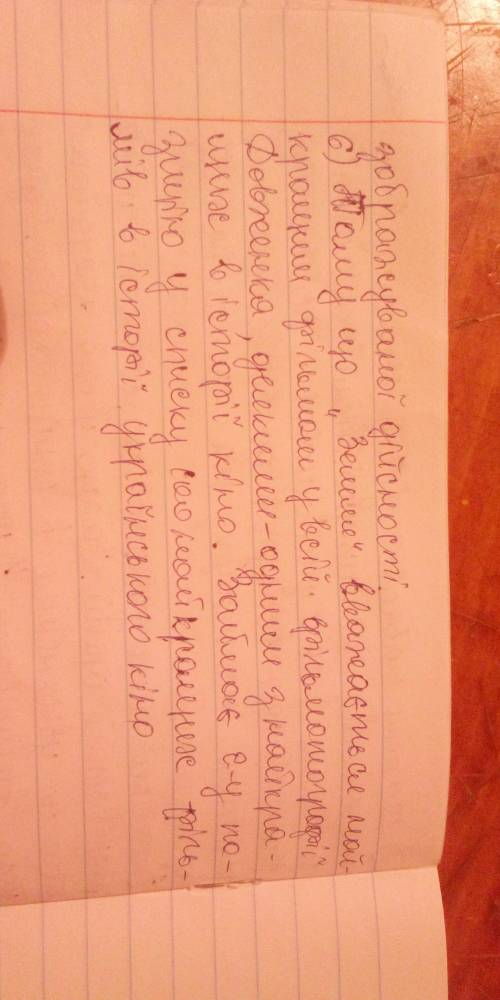 зображуваної дійсності
6) Тому що „Земля" вважається най-
кращим фільмом у всій фільмографії
Довженка, деякими - одним з найкра-
щих в історії кіно Займає 2-у по-
зицію у списку 100 найкращих філь-
мів в історії українського кіно